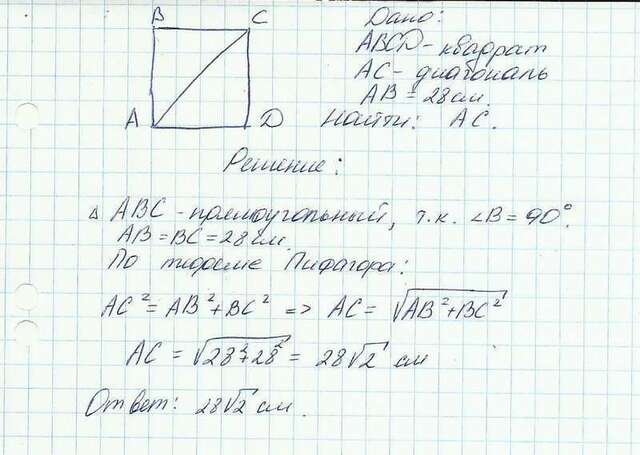 B C
A D
Дано:
ABCD - квадрат
AC - диагональ
AB = 28 см.
Найти: AC.
Решение:
△ ABC - прямоугольный, т.к. ∠B = 90°.
AB = BC = 28 см.
По теореме Пифагора:
AC² = AB² + BC² => AC = √(AB² + BC²)
AC = √(28² + 28²) = 28√2 см
Ответ: 28√2 см.